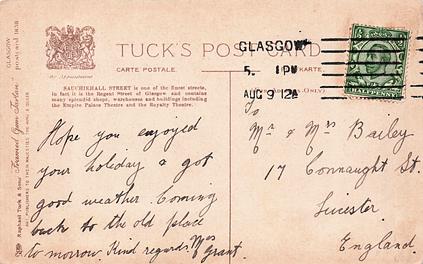 TUCK'S POST CARD
CARTE POSTALE.
By Appointment
SAUCHIEHALL STREET is one of the finest streets,
in fact it is the Regent Street of Glasgow and contains
many splendid shops, warehouses and buildings including
the Empire Palace Theatre and the Royalty Theatre.
GLASGOW
5. 1PM
AUG 9 12A
HALFPENNY
GLASGOW
Raphael Tuck & Sons'
Hope you enjoyed
your holiday & got
good weather. Coming
back to the old place
to morrow. Kind regards Mrs
Grant.
To
Mr & Mrs Bailey
17 Connaught St.
Leicester.
England.